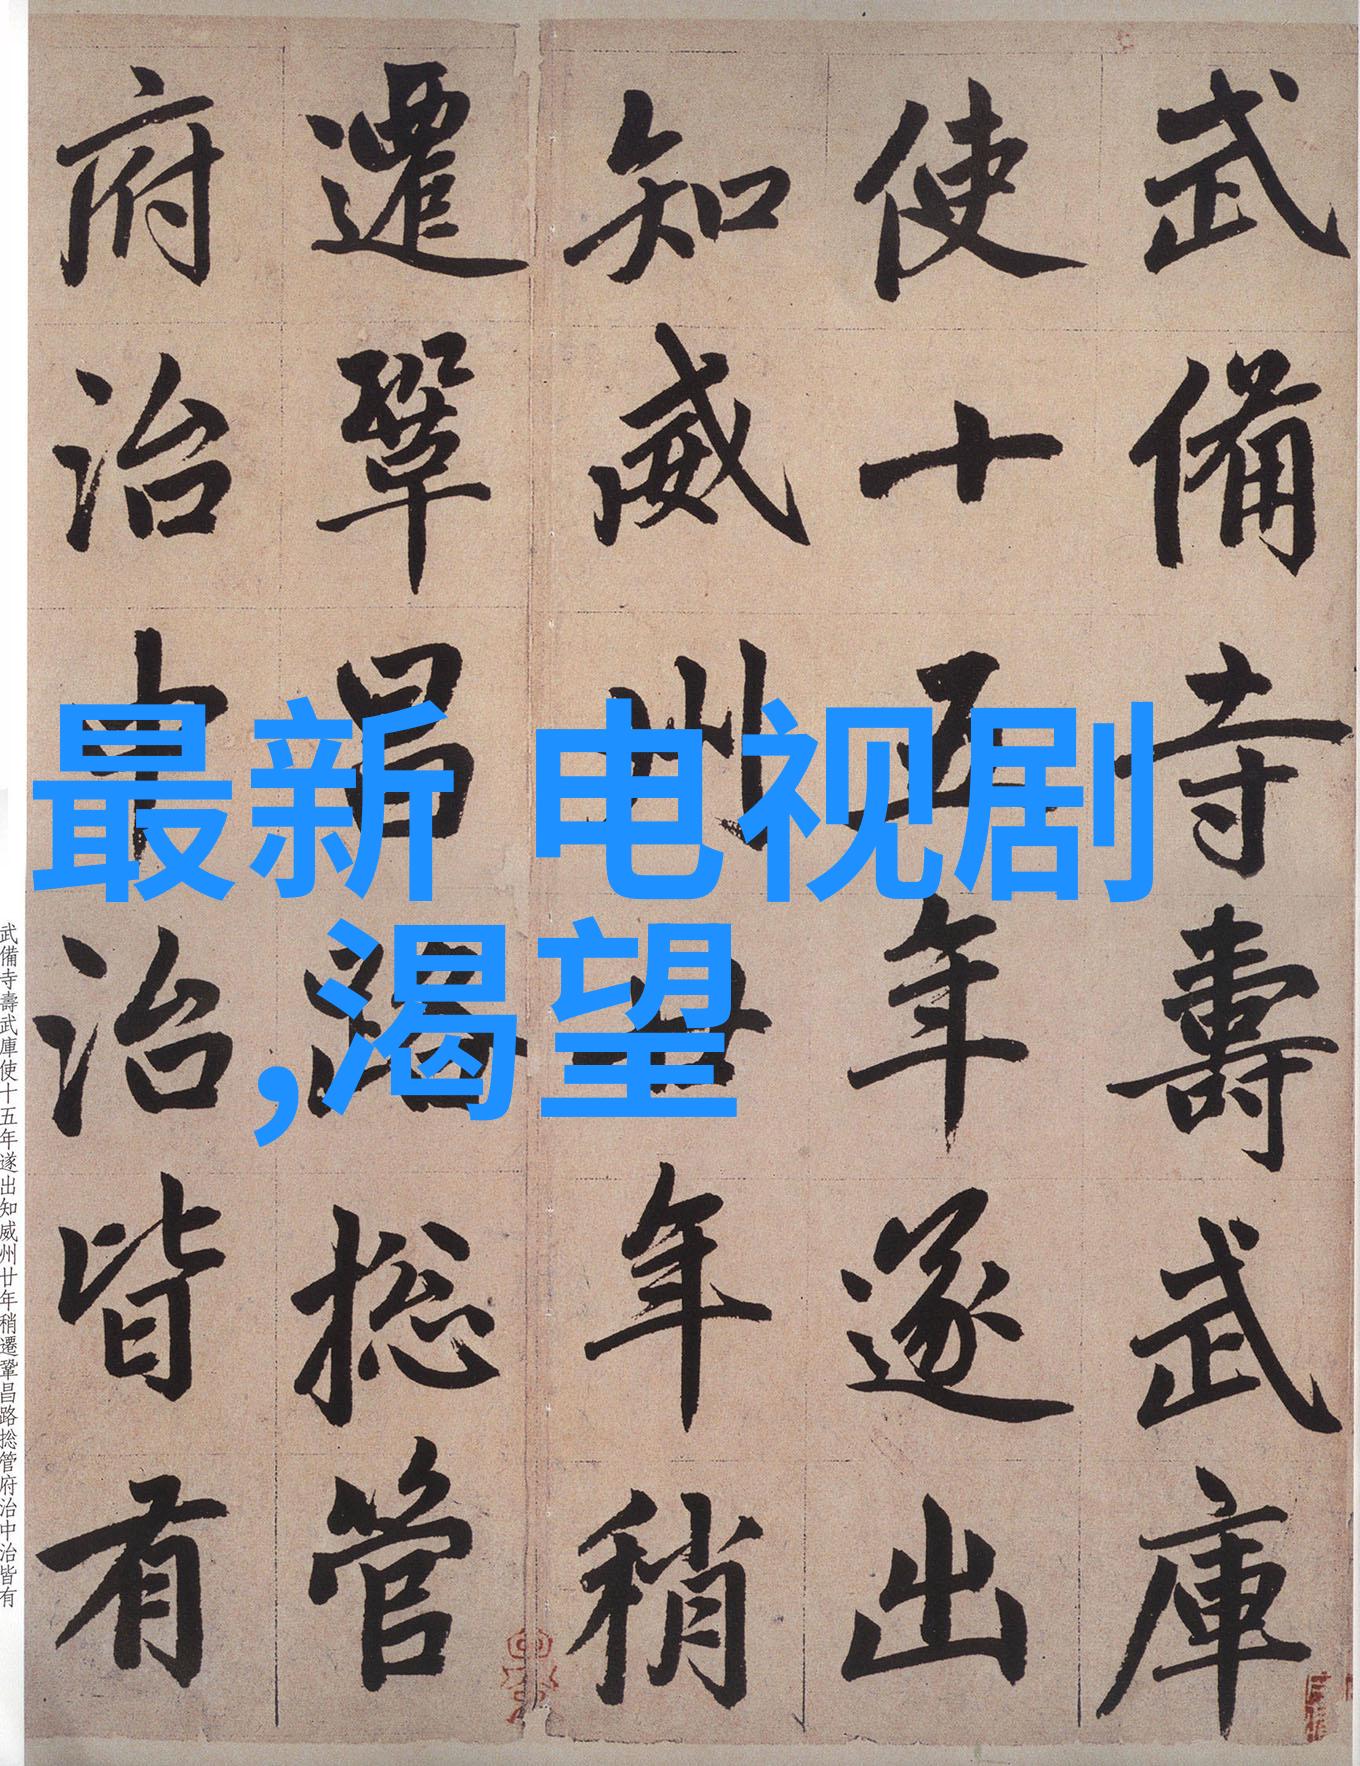 武備寺壽武庫
使十五年遂出
知威州廿年稍
遷鞏昌路捴管
府治中治皆有
最新 电视剧
,渴望
武備寺壽武庫使十五年遂出知威州廿年稍遷鞏昌路捴管府治中治皆有